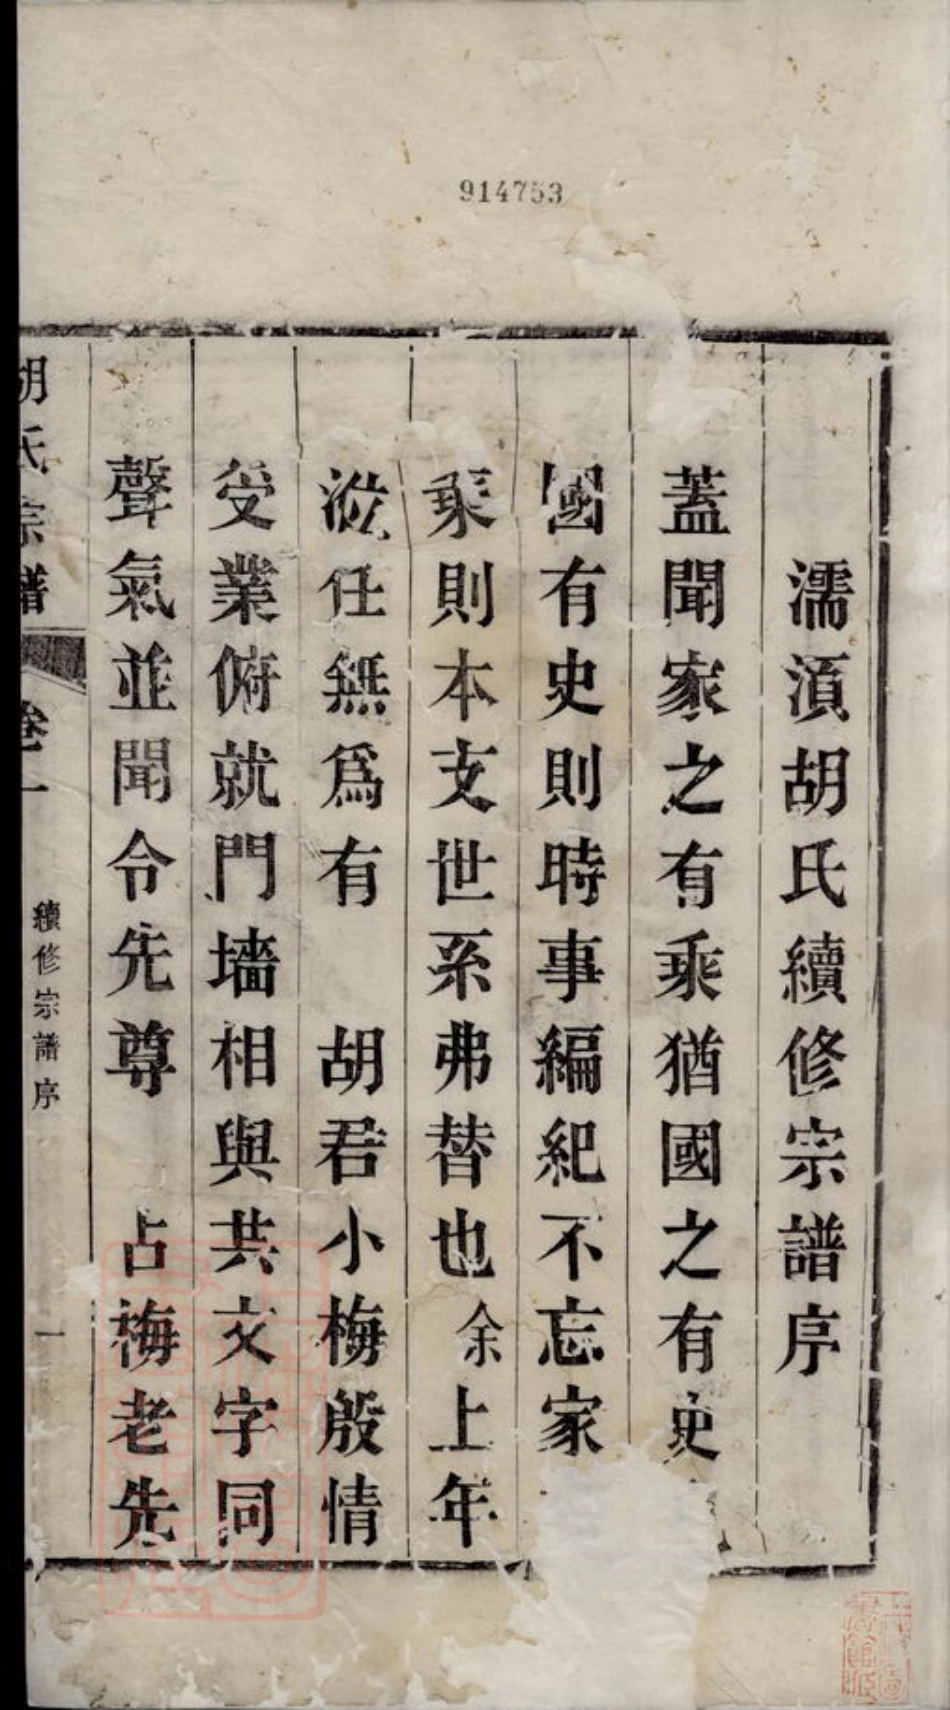 914753
濡湏胡氏續修宗譜序
蓋聞家之有乘猶國之有史
國有史則時事編紀不忘家
乘則本支世系弗替也余上年
涖任無爲有　胡君小梅殷情
受業俯就門墻相與共文字同
聲氣並聞令先尊　占梅老先
胡氏宗譜　卷一　續修宗譜序　一